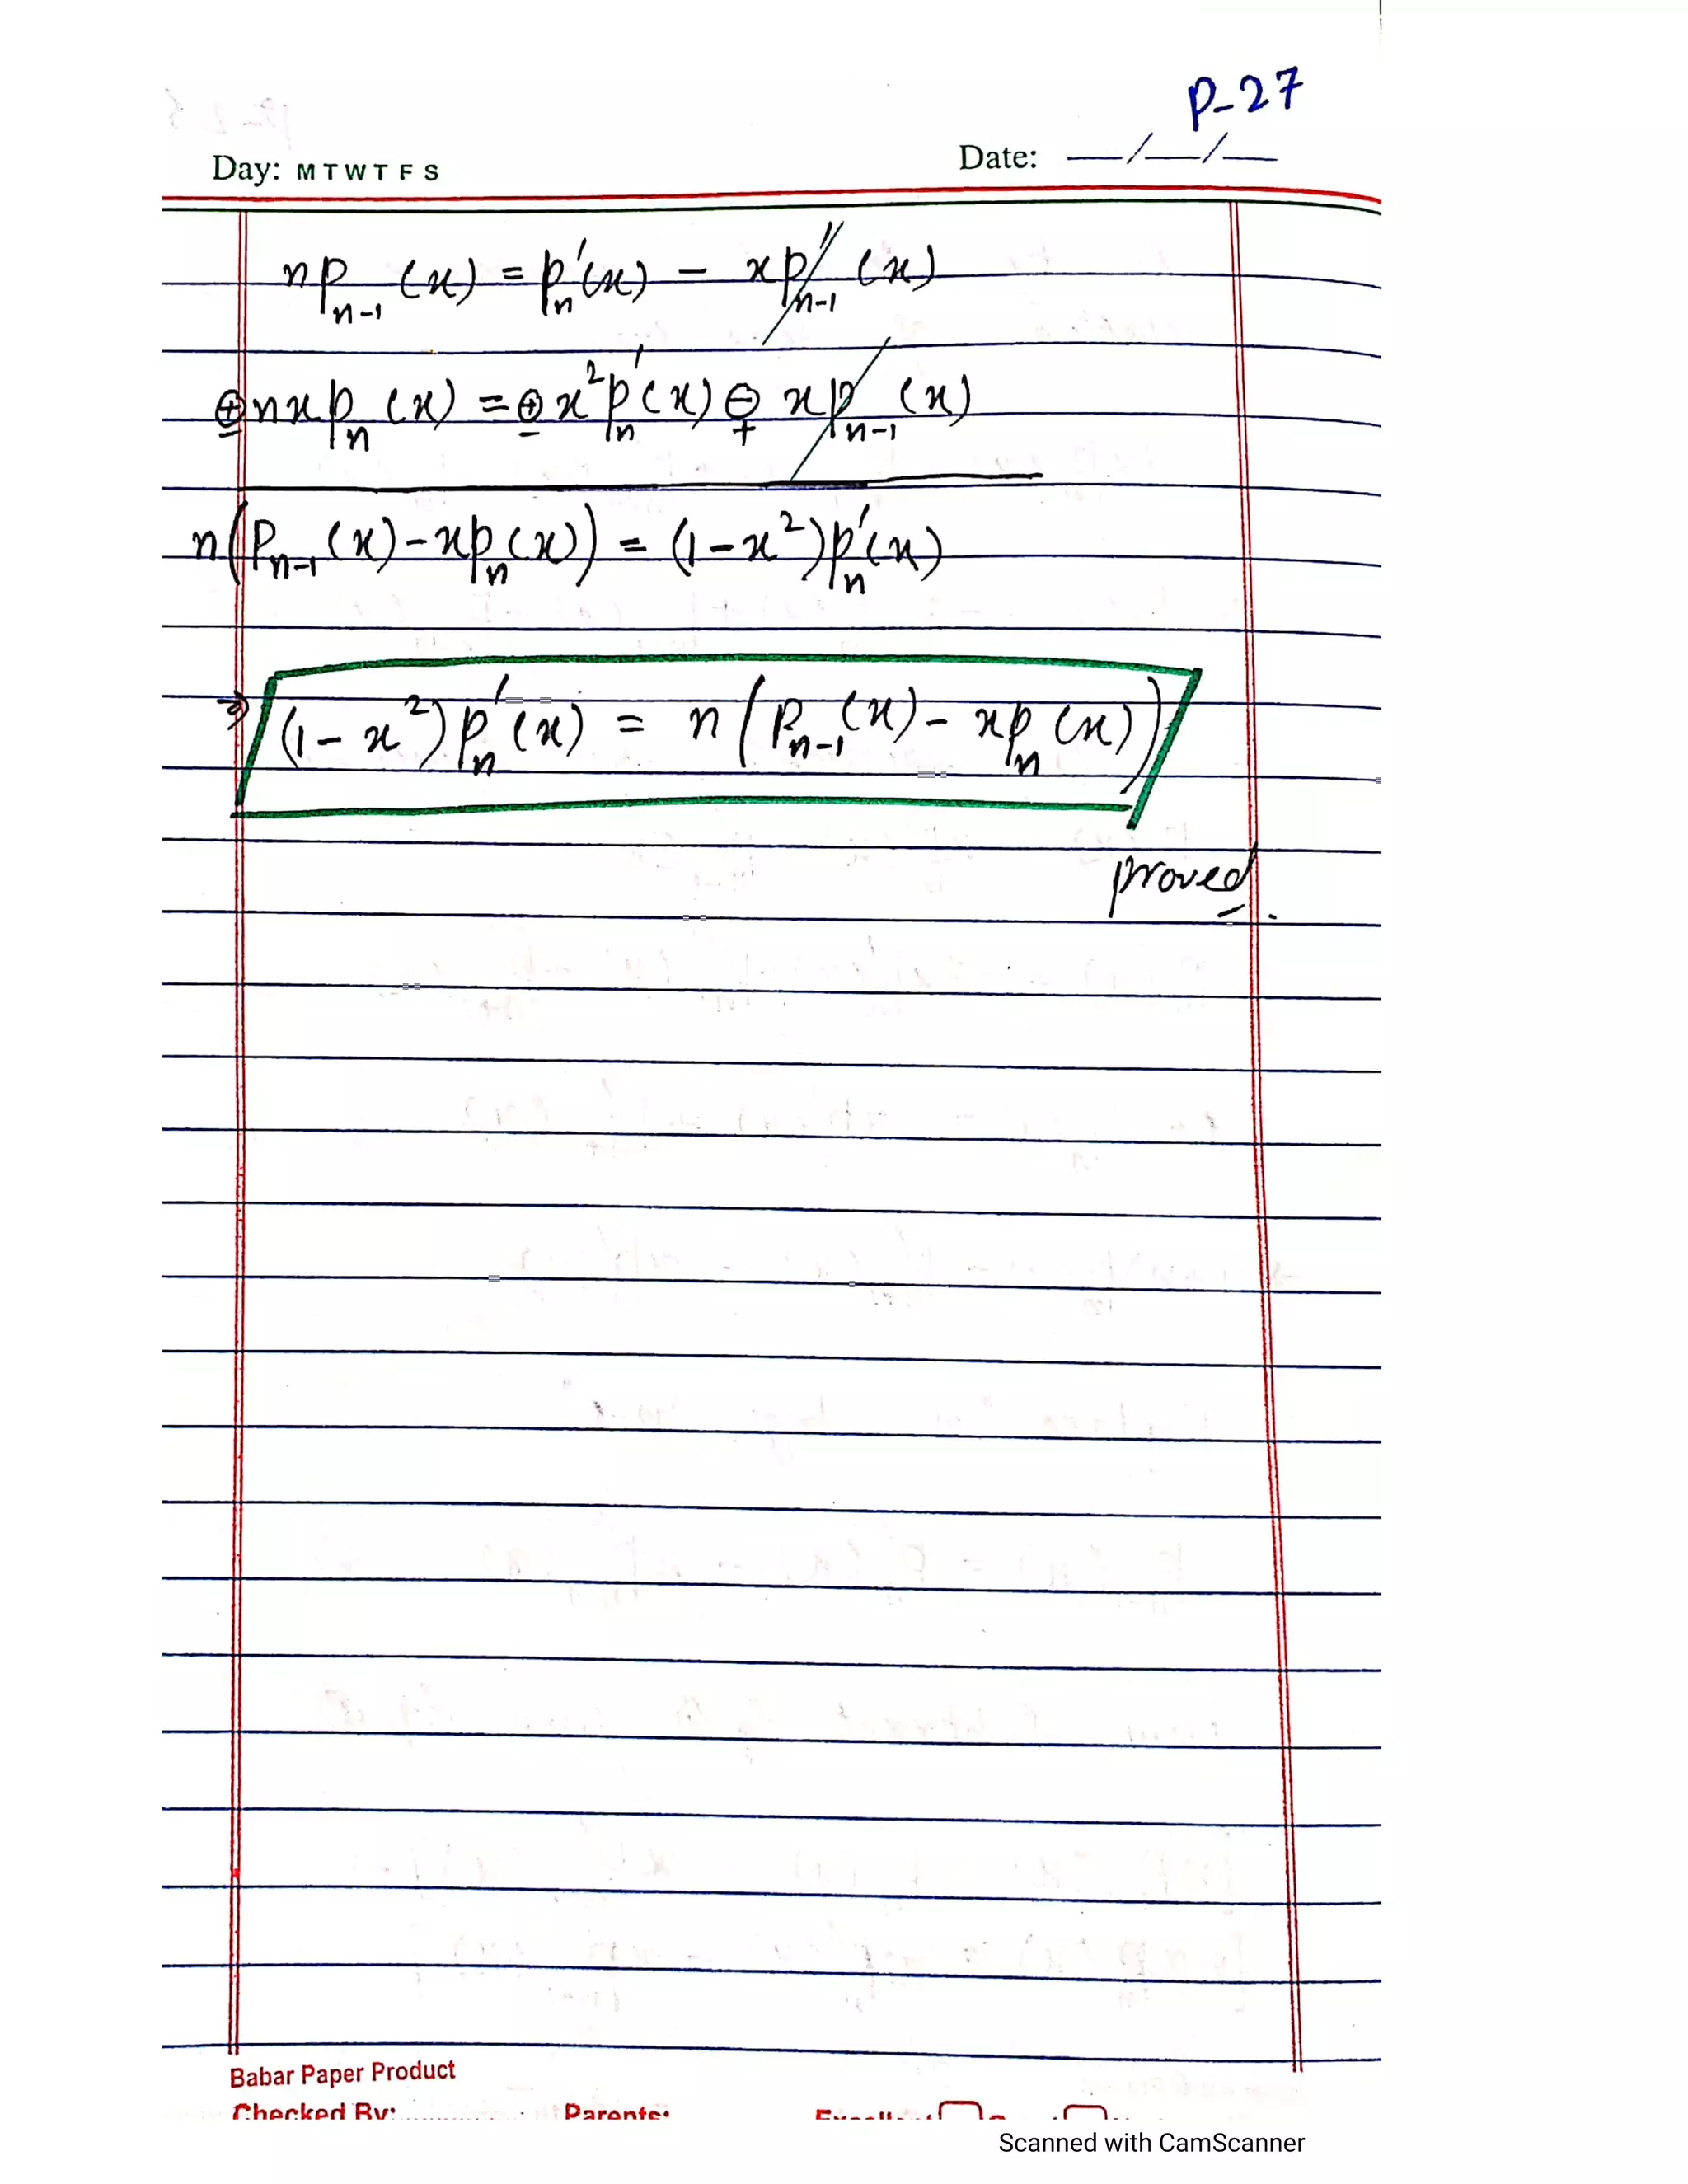 P-27
Day: M T W T F S Date: __/__/__
nPₙ₋₁(x) = Pₙ'(x) − xP'ₙ₋₁(x)
⊕nxPₙ(x) = ⊕x²Pₙ'(x) ⊖ xP'ₙ₋₁(x)
− − +
n(Pₙ₋₁(x) − xPₙ(x)) = (1−x²)Pₙ'(x)
⇒ (1−x²)Pₙ'(x) = n(Pₙ₋₁(x) − xPₙ(x))
proved.
Babar Paper Product
Checked By: Parents:
Scanned with CamScanner